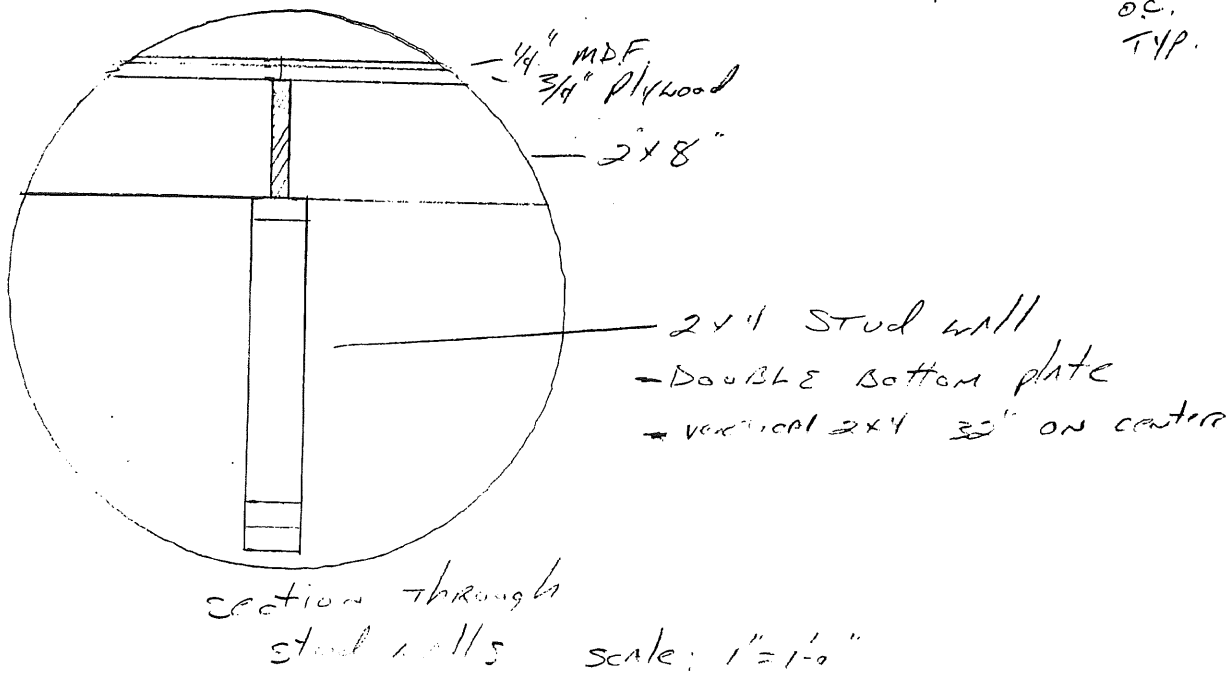 O.C.
TYP.
1/4" MDF
3/4" Plywood
2" x 8"
2 x 4 STud wall
- DOUBLE BOTTOM plate
- vertical 2x4 32" ON centers
section Through
stud walls scale: 1"=1'-0"